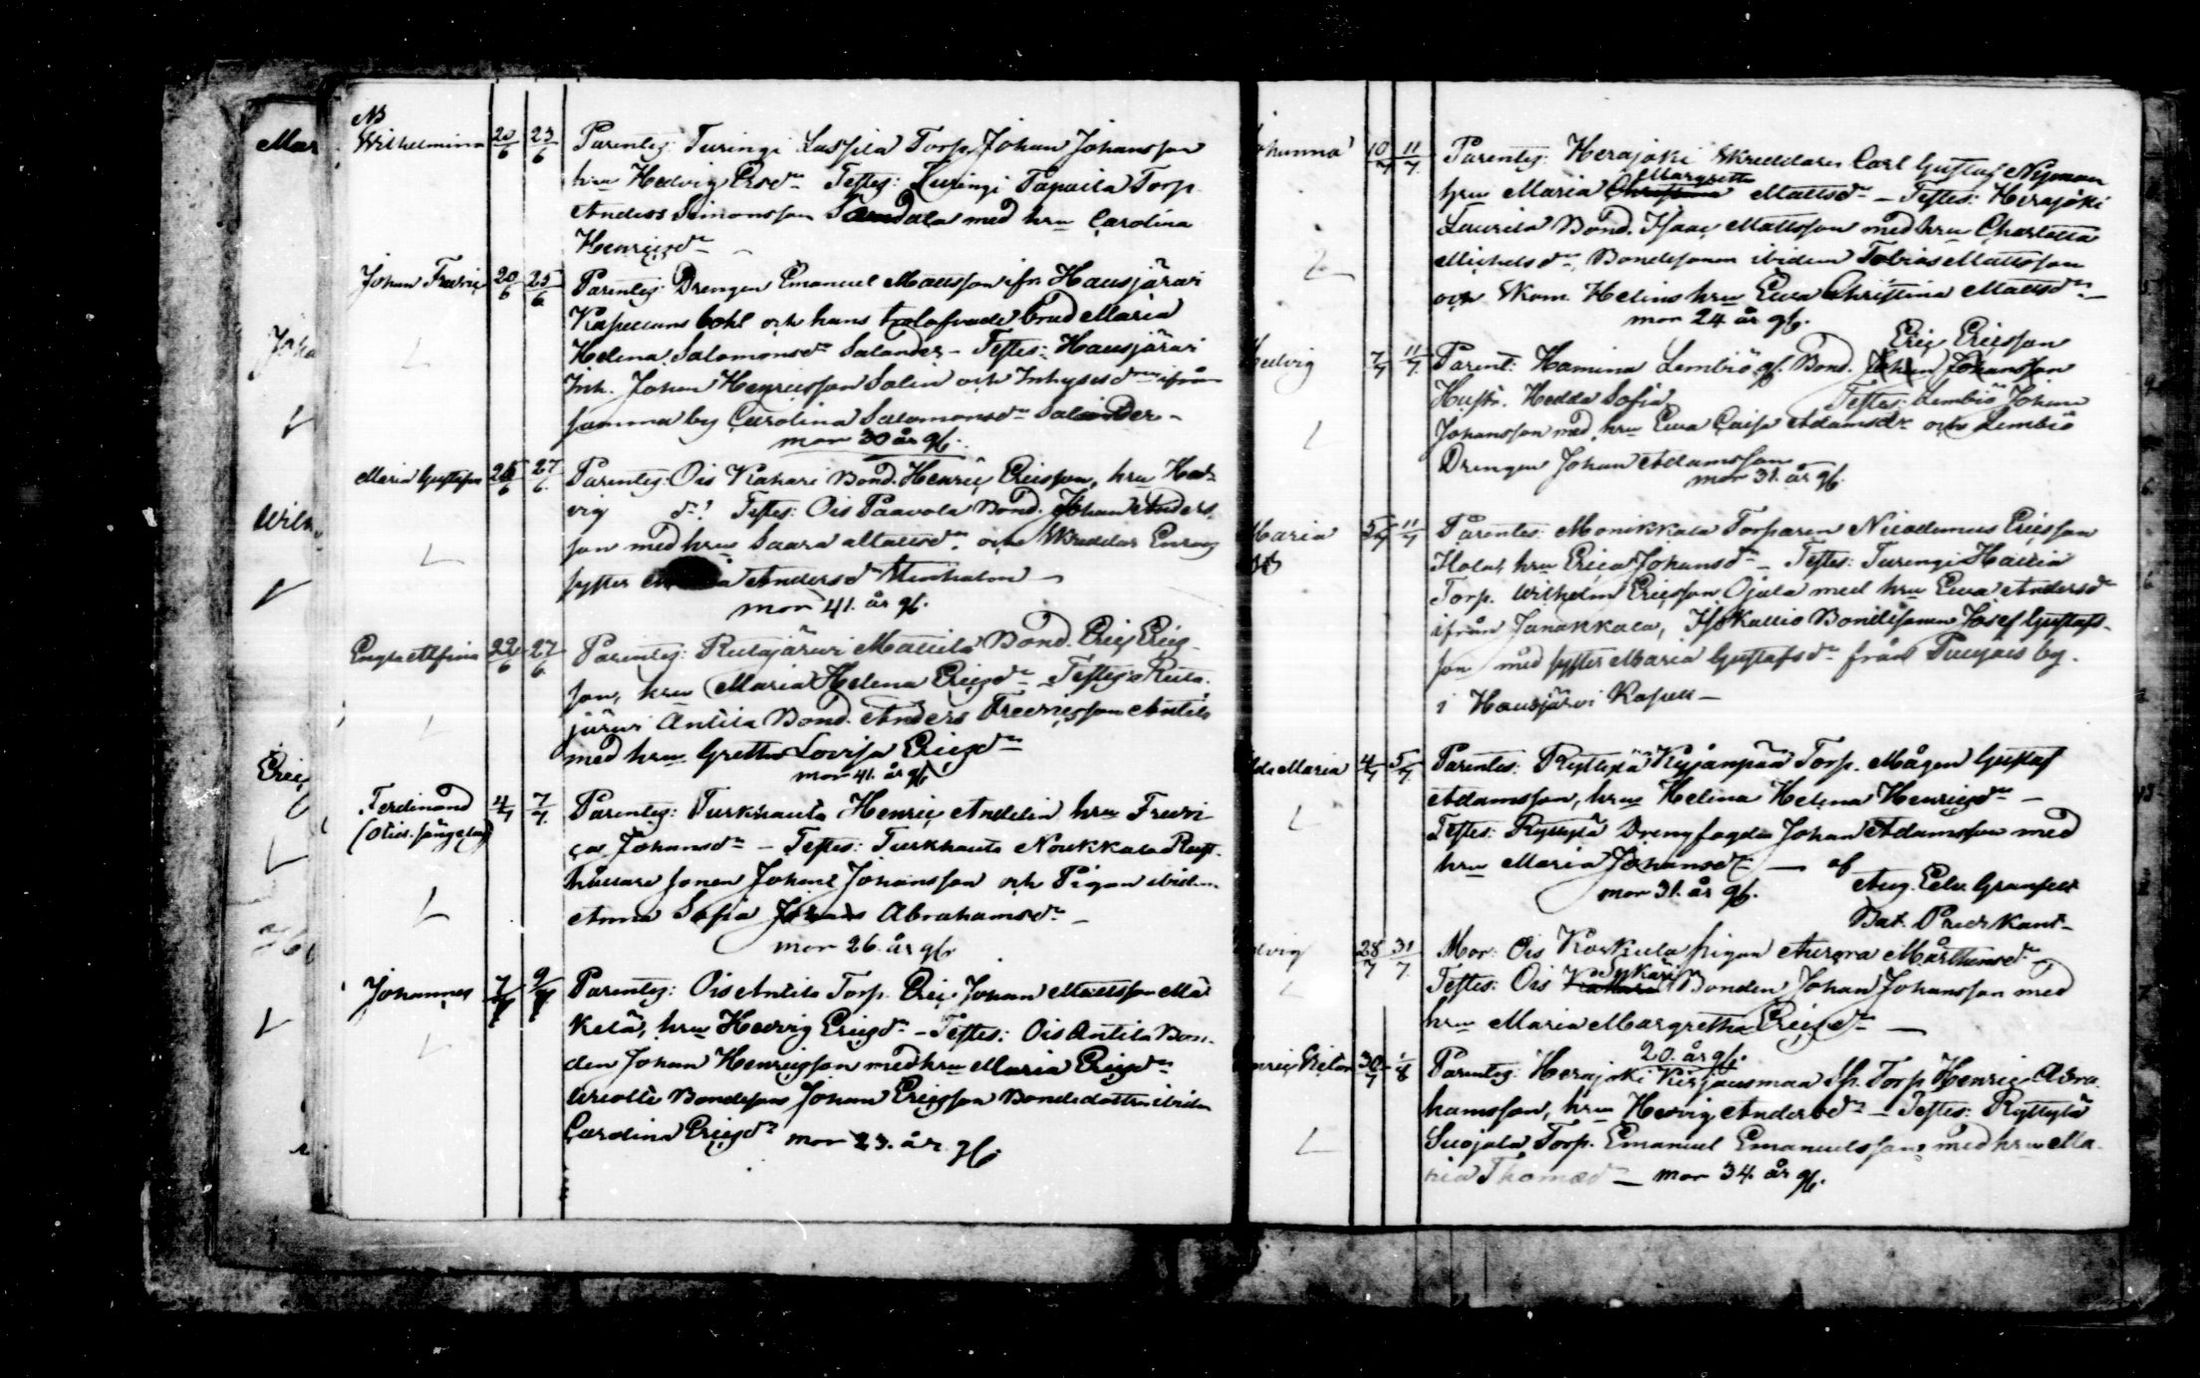 NB
Wilhelmina 20/6 23/6 Parentes: Turingi Lassila Torp. Johan Johansson
hru Hedvig Ersdr Testes: Turingi Tapaila Torp.
Anders Simonsson Sandala med hru Carolina
Henricsdr
Johan Fredric 20/6 25/6 Parentes: Drengen Emanuel Mattsson ifrn Hausjärvi
Kapellans bohl och hans trolofvade brud Maria
Helena Salomonsdr Salander - Testes: Hausjärvi
Inh. Johan Henricsson Salin och Inhysesdrn ifrån
samma by Carolina Salomonsdr Salander -
mor 30 år gl.
Maria Gustafva 26/6 27/6 Parentes: Ois Kakari Bond. Henric Ericsson, hru Hed-
vig dr? Testes: Ois Paavola Bond. Johan Anders-
son med hru Saara Mattsdr och Skreddar
syster Andersdr
mor 41. år gl.
22/6 27/6 Parentes: Rutajärvi Mattila Bond. Eric Eric-
son, hru Maria Helena Ericsdr - Testes: Ruta-
järvi Antila Bond. Anders Fredricsson Antila
med hru Gretha Lovisa Ericsdr
mor 41. år gl.
Ferdinand 4/7 7/7 Parentes: Turkhauta Henric Andelin hru Fredri-
ca Johansdr - Testes: Turkhauta Noukkala Rust-
hållare sonen Johan Johansson och Pigan ibidem
Anna Sofia Abrahamsdr -
mor 26. år gl.
Johannes 7/7 9/7 Parentes: Ois Antila Torp. Eric Johan Mattsson Mä-
kelä, hru Hedvig Ericsdr - Testes: Ois Antila Bon-
den Johan Henricsson med hru Maria Ericsdr
Bondeson Johan Ericsson Bondedottren ibidem
Carolina Ericsdr mor 23. år gl.
Johanna 10/7 11/7 Parentes: Herajoki Skreddaren Carl Gustaf Nyman
hru Maria Margretha Mattsdr - Testes: Herajoki
Laurila Bond. Isaac Mattsson med hru Charlotta
Michelsdr, Bondesonen ibidem Tobias Mattsson
och Skom. Helins hru Ewa Christina Mattsdr -
mor 24 år gl.
Eric Ericsson
Hedvig 7/7 11/7 Parent: Hamina Lembiö gl. Bond. Johan Johansson
Hustr. Hedda Sofia Testes: Lembiö Johan
Johansson med hru Ewa Caisa Adamsdr och Lembiö
Drengen Johan Adamsson
mor 31. år gl.
Maria 5/7 11/7 Parentes: Monikkala Torparen Nicodemus Ericsson
hru Erica Johansdr - Testes: Turengi Hattia
Torp. Wilhelm Ericsson Ojala med hru Ewa Andersdr
ifrån Janakkala, Isokallio Bondesonen Josef Gustafs-
son med syster Maria Gustafsdr från by.
i Hausjärvi Kapell -
Maria 4/7 5/7 Parentes: Ryttylä Kyjänpää Torp. Mågen Gustaf
Adamsson, hru Helina Helena Henricsdr -
Testes: Ryttylä Drengfogden Johan Adamsson med
hru Maria Johansdr - af
mor 31. år gl. Aug. Edv. Granfelt
Bat. Predikant -
28/7 31/7 Mor: Ois Koskula pigan Aurora Mårthensdr -
Testes: Ois Bonden Johan Johansson med
hru Maria Margretha Ericsdr -
20. år gl.
30/7 1/8 Parentes: Herajoki Kirjausmaa Sp. Torp. Henric Abra-
hamsson, hru Hedvig Andersdr - Testes: Ryttylä
Suojala Torp. Emanuel Emanuelsson med hru Ma-
ria Thomædr - mor 34. år gl.